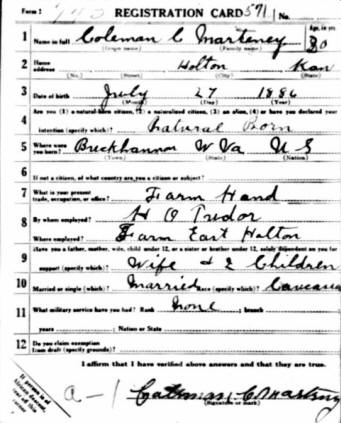 Form 1 REGISTRATION CARD 571 No.
Age, in yrs.
1 Name in full Coleman C Marteney 30
(Given name) (Family name)
2 Home address Holton Kan
(No.) (Street) (City) (State)
3 Date of birth July 27 1886
(Month) (Day) (Year)
4 Are you (1) a natural-born citizen, (2) a naturalized citizen, (3) an alien, (4) or have you declared your
intention (specify which)? Natural Born
5 Where were you born? Buckhannon W Va U S
(Town) (State) (Nation)
6 If not a citizen, of what country are you a citizen or subject?
7 What is your present trade, occupation, or office? Farm Hand
8 By whom employed? H O Tudor
Where employed? Farm East Holton
9 Have you a father, mother, wife, child under 12, or a sister or brother under 12, solely dependent on you for
support (specify which)? Wife & 2 Children
10 Married or single (which)? Married Race (specify which)? Caucasia
11 What military service have you had? Rank None ; branch
years ; Nation or State
12 Do you claim exemption from draft (specify grounds)?
I affirm that I have verified above answers and that they are true.
a-1 Coleman C Marteny
(Signature or mark)
If person is of African descent, tear off this corner